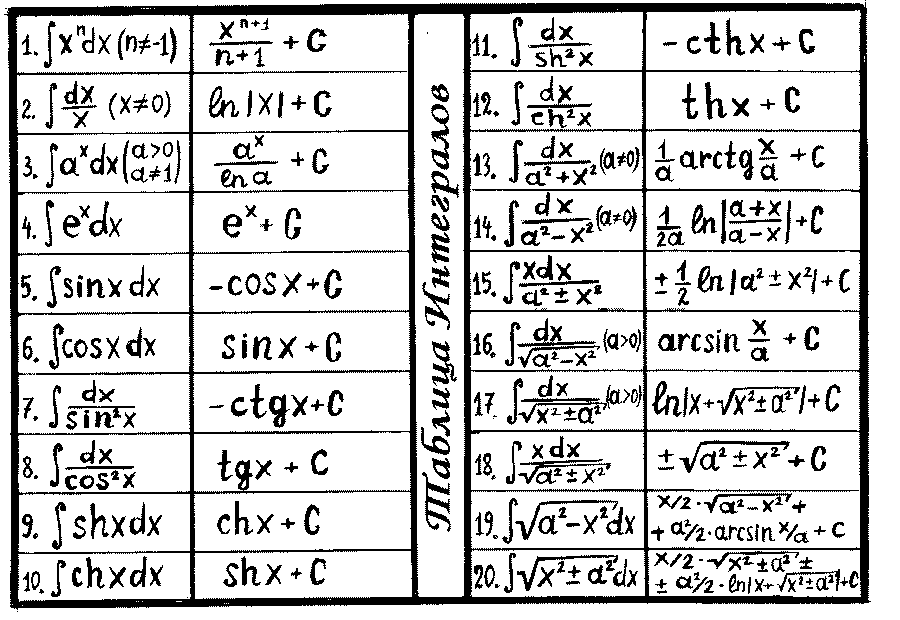 1. ∫xⁿdx (n≠-1) xⁿ⁺¹/n+1 + C
2. ∫dx/x (x≠0) ln|x| + C
3. ∫aˣdx (a>0 a≠1) aˣ/ln a + C
4. ∫eˣdx eˣ + C
5. ∫sinx dx -cosx + C
6. ∫cosx dx sinx + C
7. ∫dx/sin²x -ctgx + C
8. ∫dx/cos²x tgx + C
9. ∫shxdx chx + C
10. ∫chxdx shx + C
Таблица Интегралов
11. ∫dx/sh²x -cthx + C
12. ∫dx/ch²x thx + C
13. ∫dx/a²+x² (a≠0) 1/a arctg x/a + C
14. ∫dx/a²-x² (a≠0) 1/2a ln|a+x/a-x| + C
15. ∫xdx/a²±x² ±1/2 ln|a²±x²| + C
16. ∫dx/√a²-x² (a>0) arcsin x/a + C
17. ∫dx/√x²±a² (a>0) ln|x+√x²±a²| + C
18. ∫xdx/√a²±x² ±√a²±x² + C
19. ∫√a²-x² dx x/2·√a²-x² +
+ a²/2·arcsin x/a + C
20. ∫√x²±a² dx x/2·√x²±a² ±
± a²/2·ln|x+√x²±a²| + C